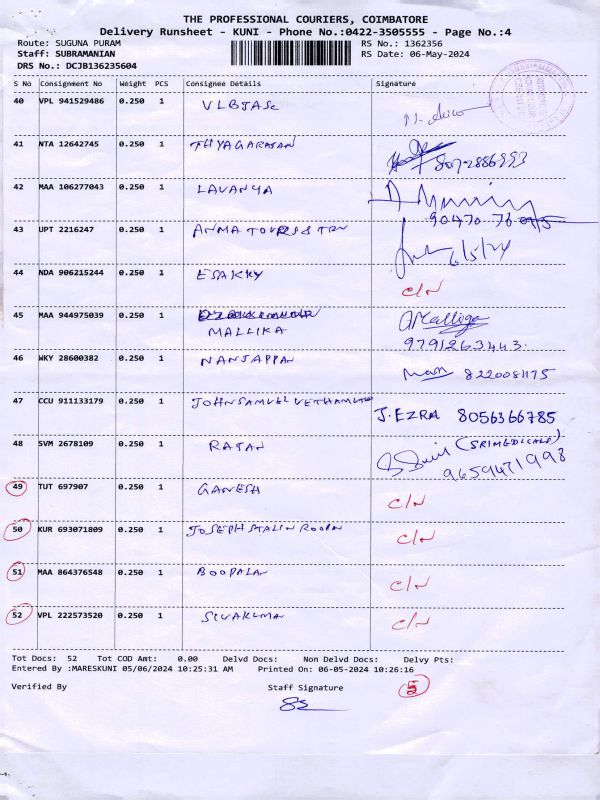 THE PROFESSIONAL COURIERS, COIMBATORE
Delivery Runsheet - KUNI - Phone No.:0422-3505555 - Page No.:4
Route: SUGUNA PURAM RS No.: 1362356
Staff: SUBRAMANIAN RS Date: 06-May-2024
DRS No.: DCJB136235604
S No Consignment No Weight PCS Consignee Details Signature
40 VPL 941529486 0.250 1 VLBJASC
41 NTA 12642745 0.250 1 THYAGARASAN
42 MAA 106277043 0.250 1 LAVANYA
90470 76
43 UPT 2216247 0.250 1 ANMA TOURIS & TRV 6/5/24
44 NDA 906215244 0.250 1 ESAKKY C/N
45 MAA 944975039 0.250 1 MALLIKA Malliga
9791263443.
46 WKY 28600382 0.250 1 NANJAPPAN 8220081175
47 CCU 911133179 0.250 1 JOHNSAMUEL J. EZRA 8056366785
48 SVM 2678109 0.250 1 RAJAN (SRIMEDICALS)
9659471998
49 TUT 697907 0.250 1 GANESH C/N
50 KUR 693071809 0.250 1 JOSEPH STALIN ROOPAN C/N
51 MAA 864376548 0.250 1 BOOPALAN C/N
52 VPL 222573520 0.250 1 SIVAKUMA C/N
Tot Docs: 52 Tot COD Amt: 0.00 Delvd Docs: Non Delvd Docs: Delvy Pts:
Entered By :MARESKUNI 05/06/2024 10:25:31 AM Printed On: 06-05-2024 10:26:16
Verified By Staff Signature 5